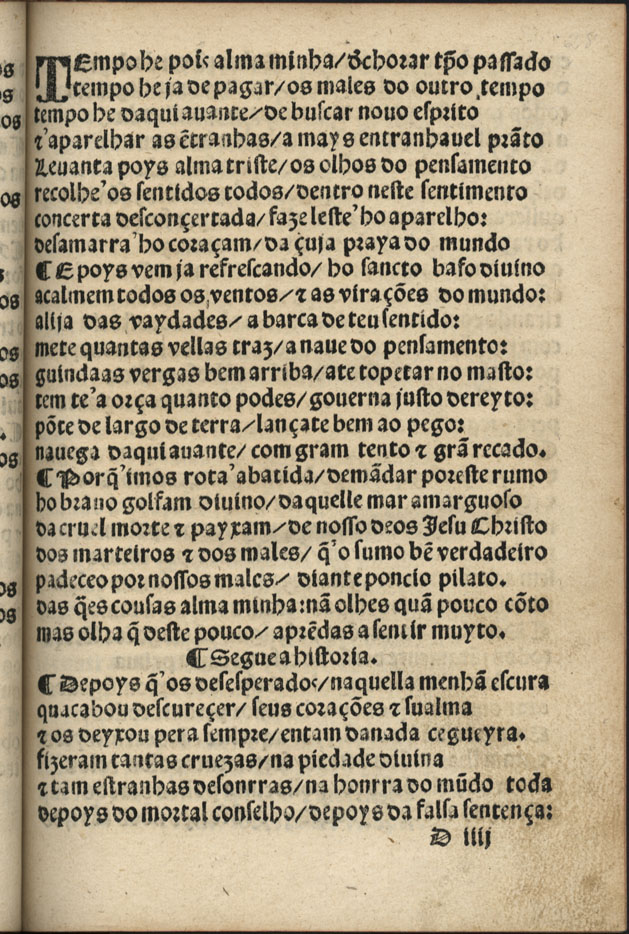 TEmpo he pois alma minha/ d'chorar tp̃o passado
tempo he ja de pagar/os males do outro tempo
tempo he daqui auante/de buscar nouo esprito
⁊'aparelhar as ẽtranhas/a mays entranhauel prãto
Leuanta poys alma triste/os olhos do pensamento
recolhe'os sentidos todos/dentro neste sentimento
concerta desconçertada/faze leste'ho aparelho:
desamarra'ho coraçam/da çuja praya do mundo
¶ E poys vem ja refrescando/ ho sancto bafo diuino
acalmem todos os ventos/⁊ as virações do mundo:
alija das vaydades/ a barca de teu sentido:
mete quantas vellas traz/a naue do pensamento:
guinda as vergas bem arriba/ate topetar no masto:
tem te'a orça quanto podes/gouerna justo dereyto:
põte de largo de terra/lançate bem ao pego:
nauega daqui auante/ com gram tento ⁊ grã recado.
¶ Porq̃'imos rota'abatida/demãdar por este rumo
ho brauo golfam diuino/daquelle mar amarguoso
da cruel morte ⁊ payxam/de nosso deos Jesu Christo
dos marteiros ⁊ dos males/ q̃'o sumo bẽ verdadeiro
padeceo por nossos males/ diante poncio pilato.
das q̃es cousas alma minha:nã olhes quã pouco cõto
mas olha q̃ deste pouco/ aprẽdas a sentir muyto.
¶ Segue a historia.
¶ Depoys q̃'os desesperados/naquella menhã escura
qu acabou descureçer/ seus corações ⁊ su alma
⁊ os deyxou pera sempre/en tam danada cegueyra.
fizeram tantas cruezas/na piedade diuina
⁊ tam estranhas desonrras/na honrra do mũdo toda
depoys do mortal conselho/depoys da falsa sentença:
D iiij
os
s
os
os
os
os
os
.
os
os
os